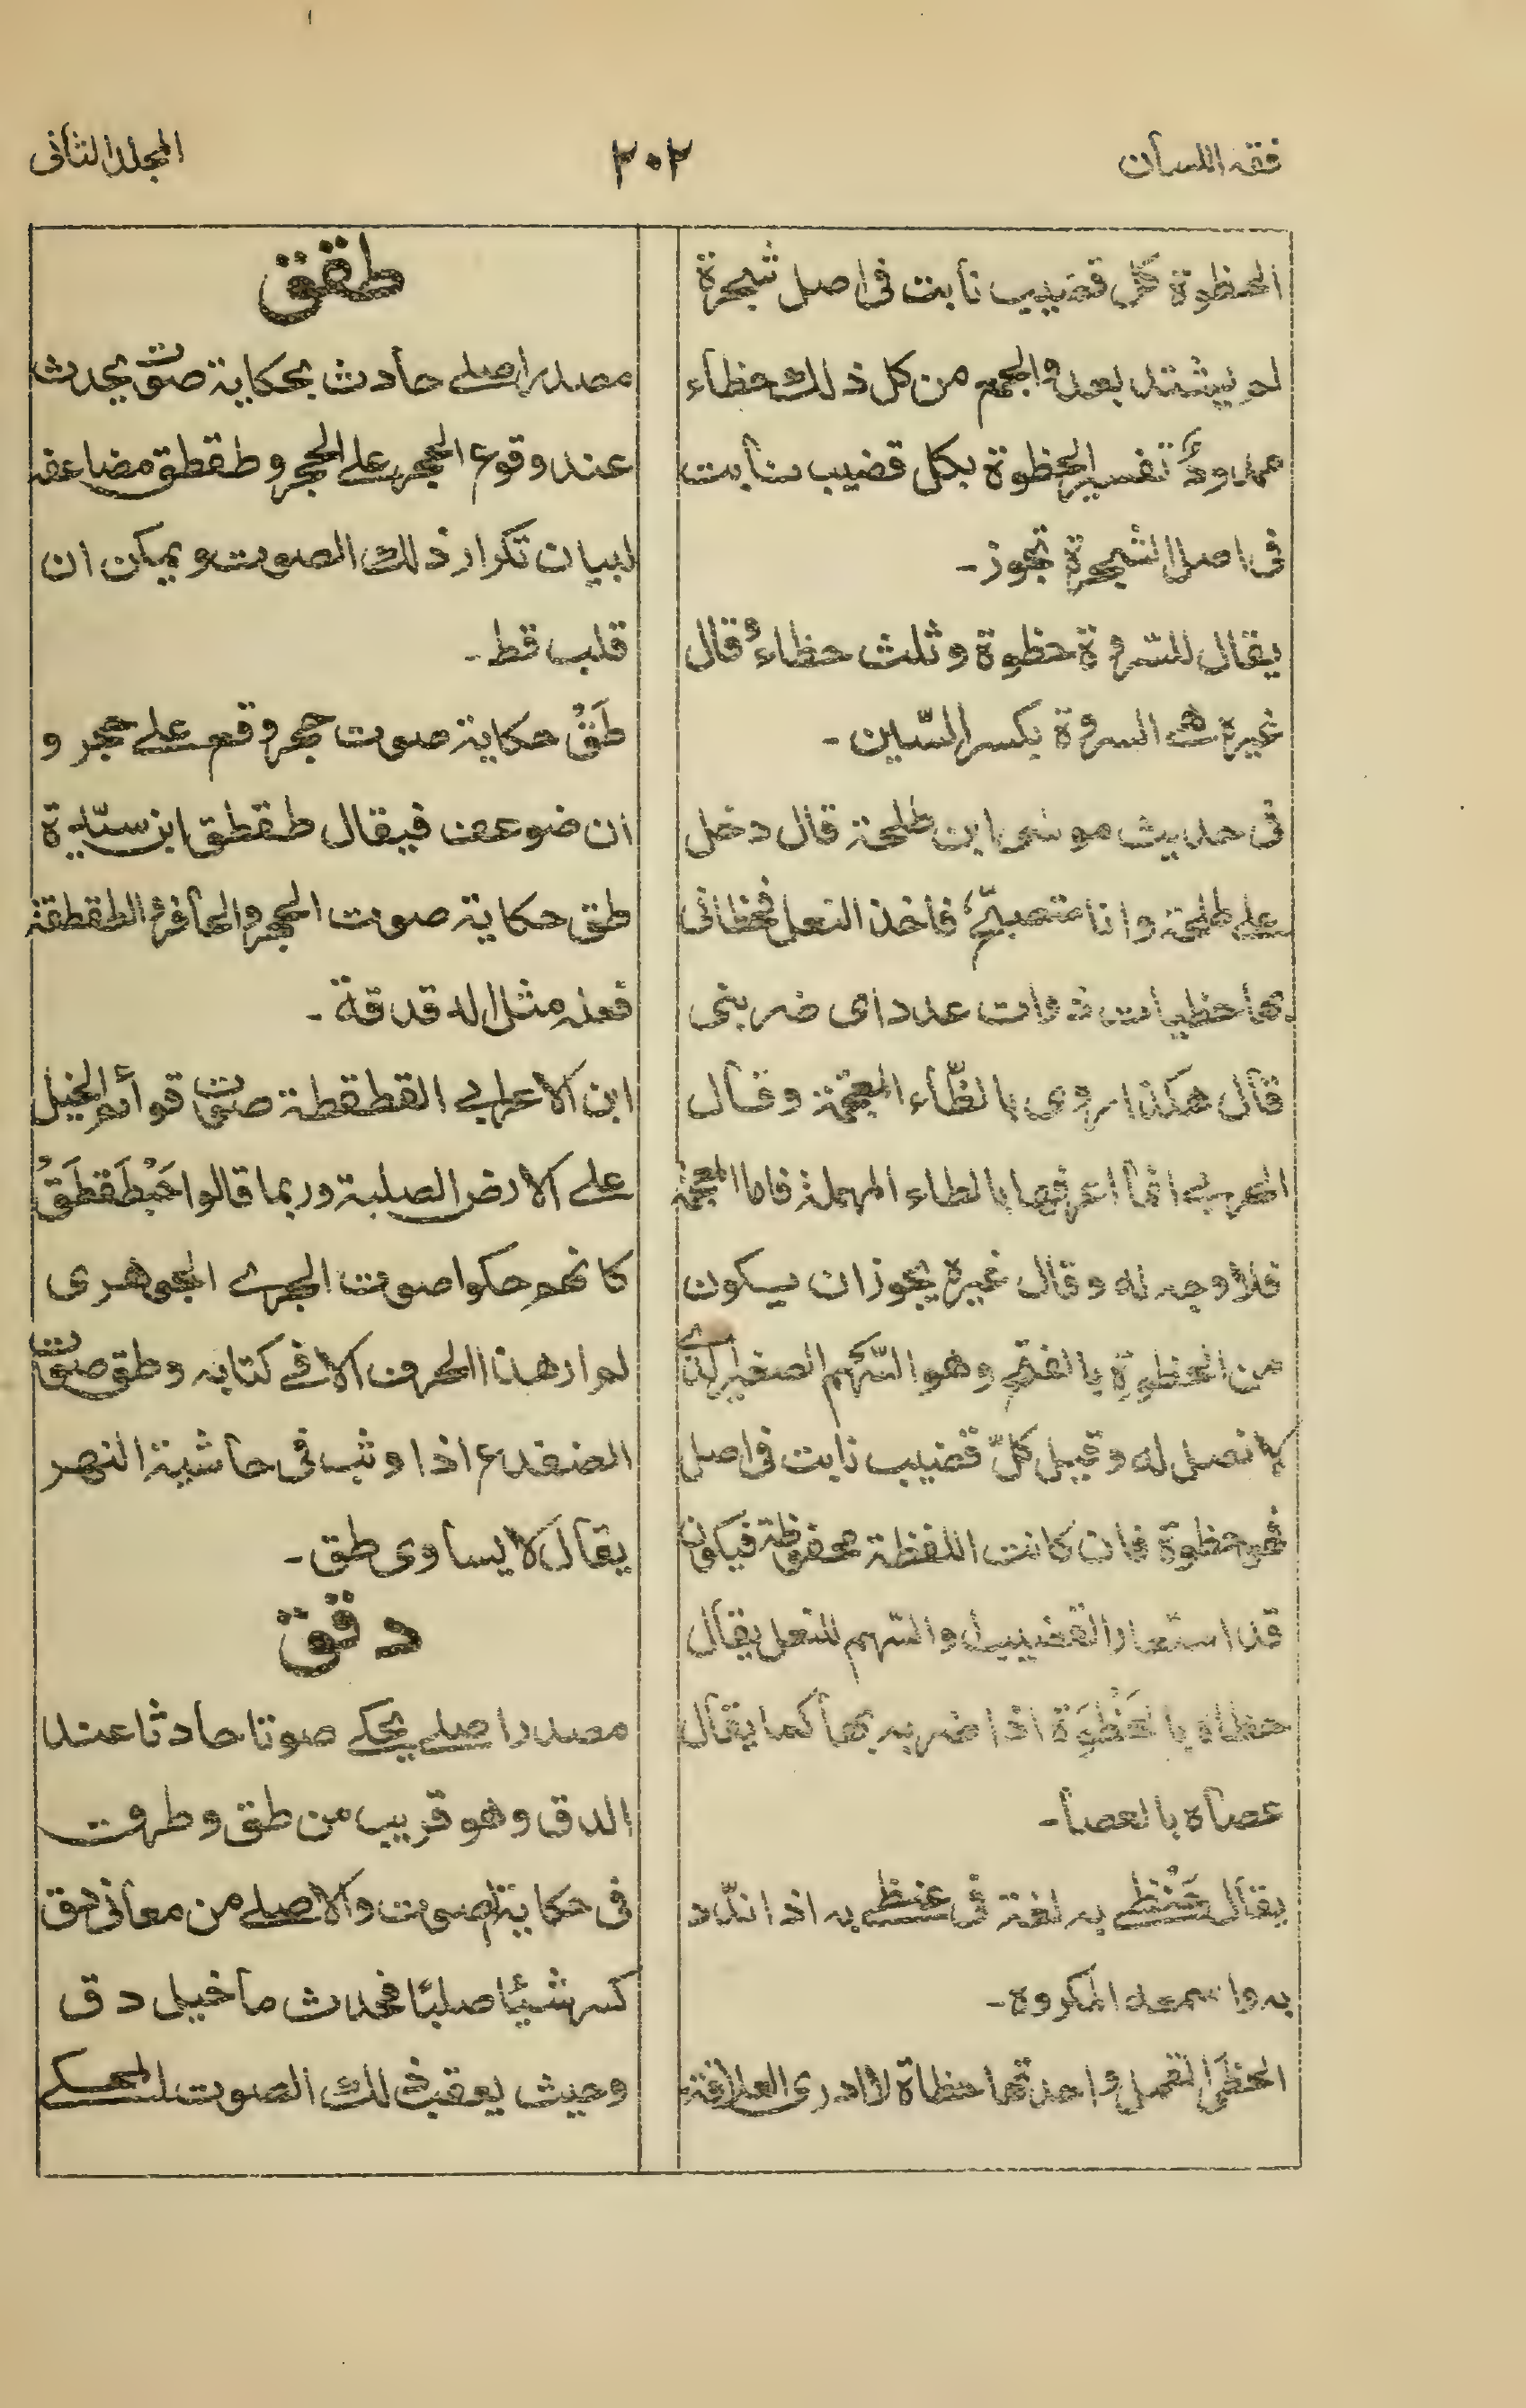 فقه اللسان
٢٠٢
المجلد الثانى
الحظوة كل قضيب نابت فى اصل شجرة
لم يشتد بعد والجمع من كل ذلك حظاء
ممدودٌ تفسير الحظوة بكل قضيب نابت
فى اصل الشجرة تجوز۔
يقال للسّروة حظوة وثلث حظاء وقال
غيره هى السروة بكسر السّين۔
فى حديث موسى ابن طلحة قال دخل
على طلحة وانا متصبّح فاخذ النعل فحظانى
بها حظيات ذوات عدد اى ضربنى
قال هكذا روى بالظّاء المعجمة وقال
الحربى انما اعرفها بالطاء المهملة فاما المعجمة
فلا وجه له وقال غيره يجوز ان يكون
من الحظوة بالفتح وهو السّهم الصغير الذى
لا نصل له وقيل كلّ قضيب نابت فى اصل
فهو حظوة فان كانت اللفظة محفوظة فيكون
قد استعار القضيب والسّهم للنعل يقال
حظاه بالحَظْوَة اذا ضربه بها كما يقال
عصاه بالعصا۔
يقال حَنْظى به لغة فى عنظى به اذا ندّد
به واسمعه المكروه۔
الحظَى القمل واحدتها حظاة لا ادرى العلاقة
طقق
مصدر اصلى حادث بحكاية صوت يحدث
عند وقوع الحجر على الحجر وطقطق مضاعفه
لبيان تكرار ذلك الصوت ويمكن ان
قلب قط۔
طَقْ حكاية صوت حجر وقع على حجر و
ان ضوعف فيقال طقطق ابن سيّدة
طق حكاية صوت الحجر والحافر والطقطقة
فعله مثل الدقدقة۔
ابن الاعرابى القطقطة صوت قوائم الخيل
على الارض الصلبة وربما قالوا حَبَطَقْطَقْ
كانهم حكوا صوت الجرى الجوهرى
لم ار هذا الحرف الا فى كتابه وطق صوت
الضفدع اذا وثب فى حاشية النهر
يقال لا يساوى طق۔
دقق
مصدر اصلى يحكى صوتا حادثا عند
الدق وهو قريب من طق وطرق
فى حكاية الصوت والاصلى من معانى دق
كسر شيئًا صلبًا فحدث ما خيل دق
وحيث يعقب ذلك الصوت المحكى